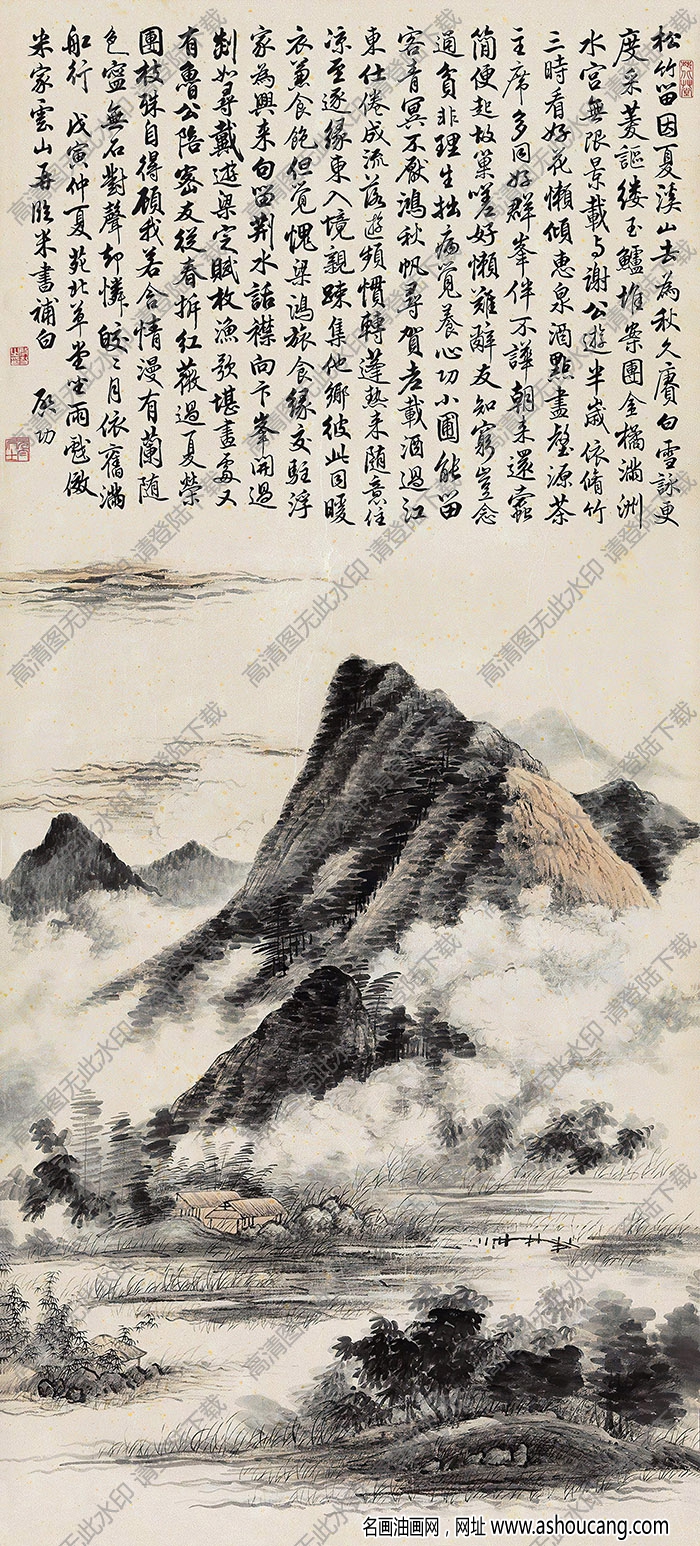 松竹留因夏溪山去為秋久賡白雪詠更
度采菱謳縷玉鱸堆案團金橘滿洲
水宮無限景載与謝公遊半歲依脩竹
三時看好花懶傾惠泉酒點盡壑源茶
主席多同好群峯伴不譁朝来還蠹
簡便起故巢嗟好懶難辭友知窮豈念
通貧非理生拙病覺養心功小圃能留
客青冥不厭鴻秋帆尋賀老載酒過江
東仕倦成流落遊頻慣轉蓬熱来隨意住
涼至逐緣東入境親踈集他鄉彼此同暖
衣兼食飽但覺愧梁鴻旅食緣交駐浮
家為興来句留荆水話襟向卞峯開過
剡如尋戴遊梁定賦枚漁歌堪畫處又
有魯公陪密友從春拆紅薇過夏榮
團枝殊自得顧我若含情漫有蘭隨
色寧無石對聲却憐皎〻月依舊滿
舡行 戊寅仲夏苑北草堂坐雨戲倣
米家雲山再臨米書補白 啟功
高清图无此水印 请登陆下载
名画油画网，网址 www.ashoucang.com